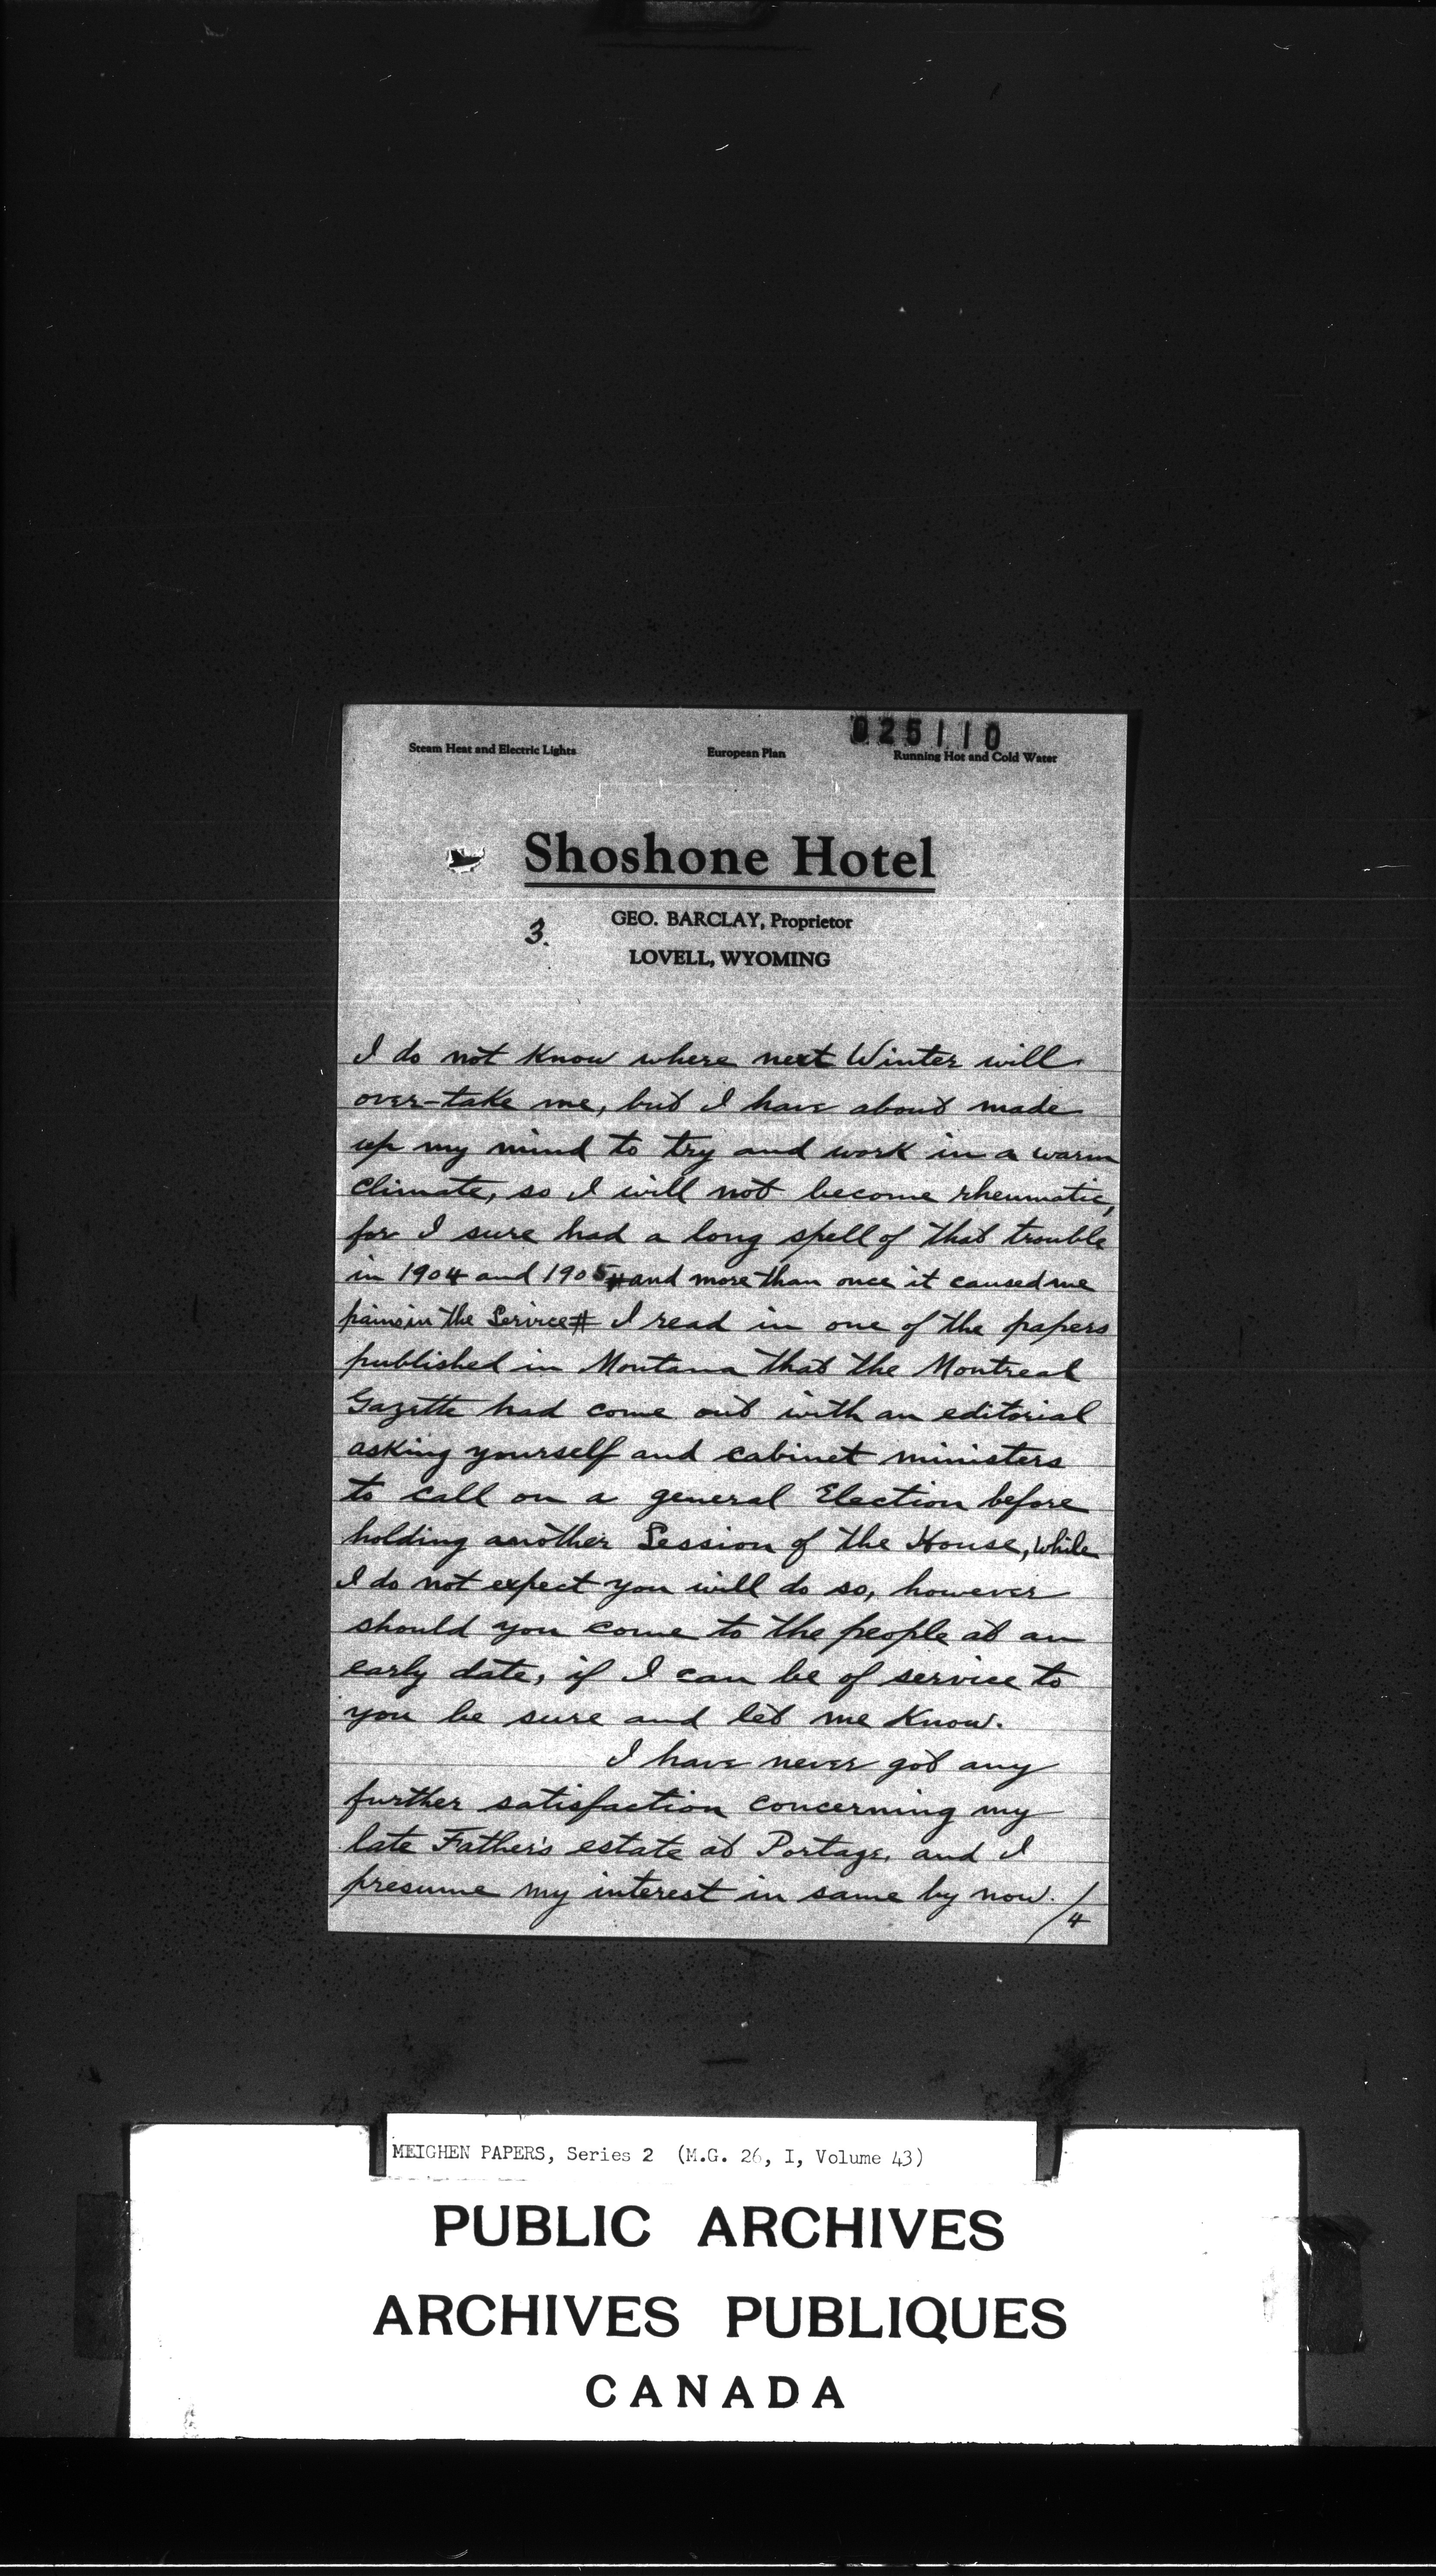 025110
Steam Heat and Electric Lights European Plan Running Hot and Cold Water
Shoshone Hotel
3.
GEO. BARCLAY, Proprietor
LOVELL, WYOMING
I do not Know where next Winter will
over-take me, but I have about made
up my mind to try and work in a warm
climate, so I will not become rheumatic,
for I sure had a long spell of that trouble
in 1904 and 1905 # and more than once it caused me
pains in the Service # I read in one of the papers
published in Montana that the Montreal
Gazette had come out with an editorial
asking yourself and cabinet ministers
to call on a general Election before
holding another Session of the House, while
I do not expect you will do so, however
should you come to the people at an
early date, if I can be of service to
you be sure and let me Know.
I have never got any
further satisfaction concerning my
late Father's estate at Portage, and I
presume my interest in same by now.
/4
MEIGHEN PAPERS, Series 2 (M.G. 26, I, Volume 43)
PUBLIC ARCHIVES
ARCHIVES PUBLIQUES
CANADA